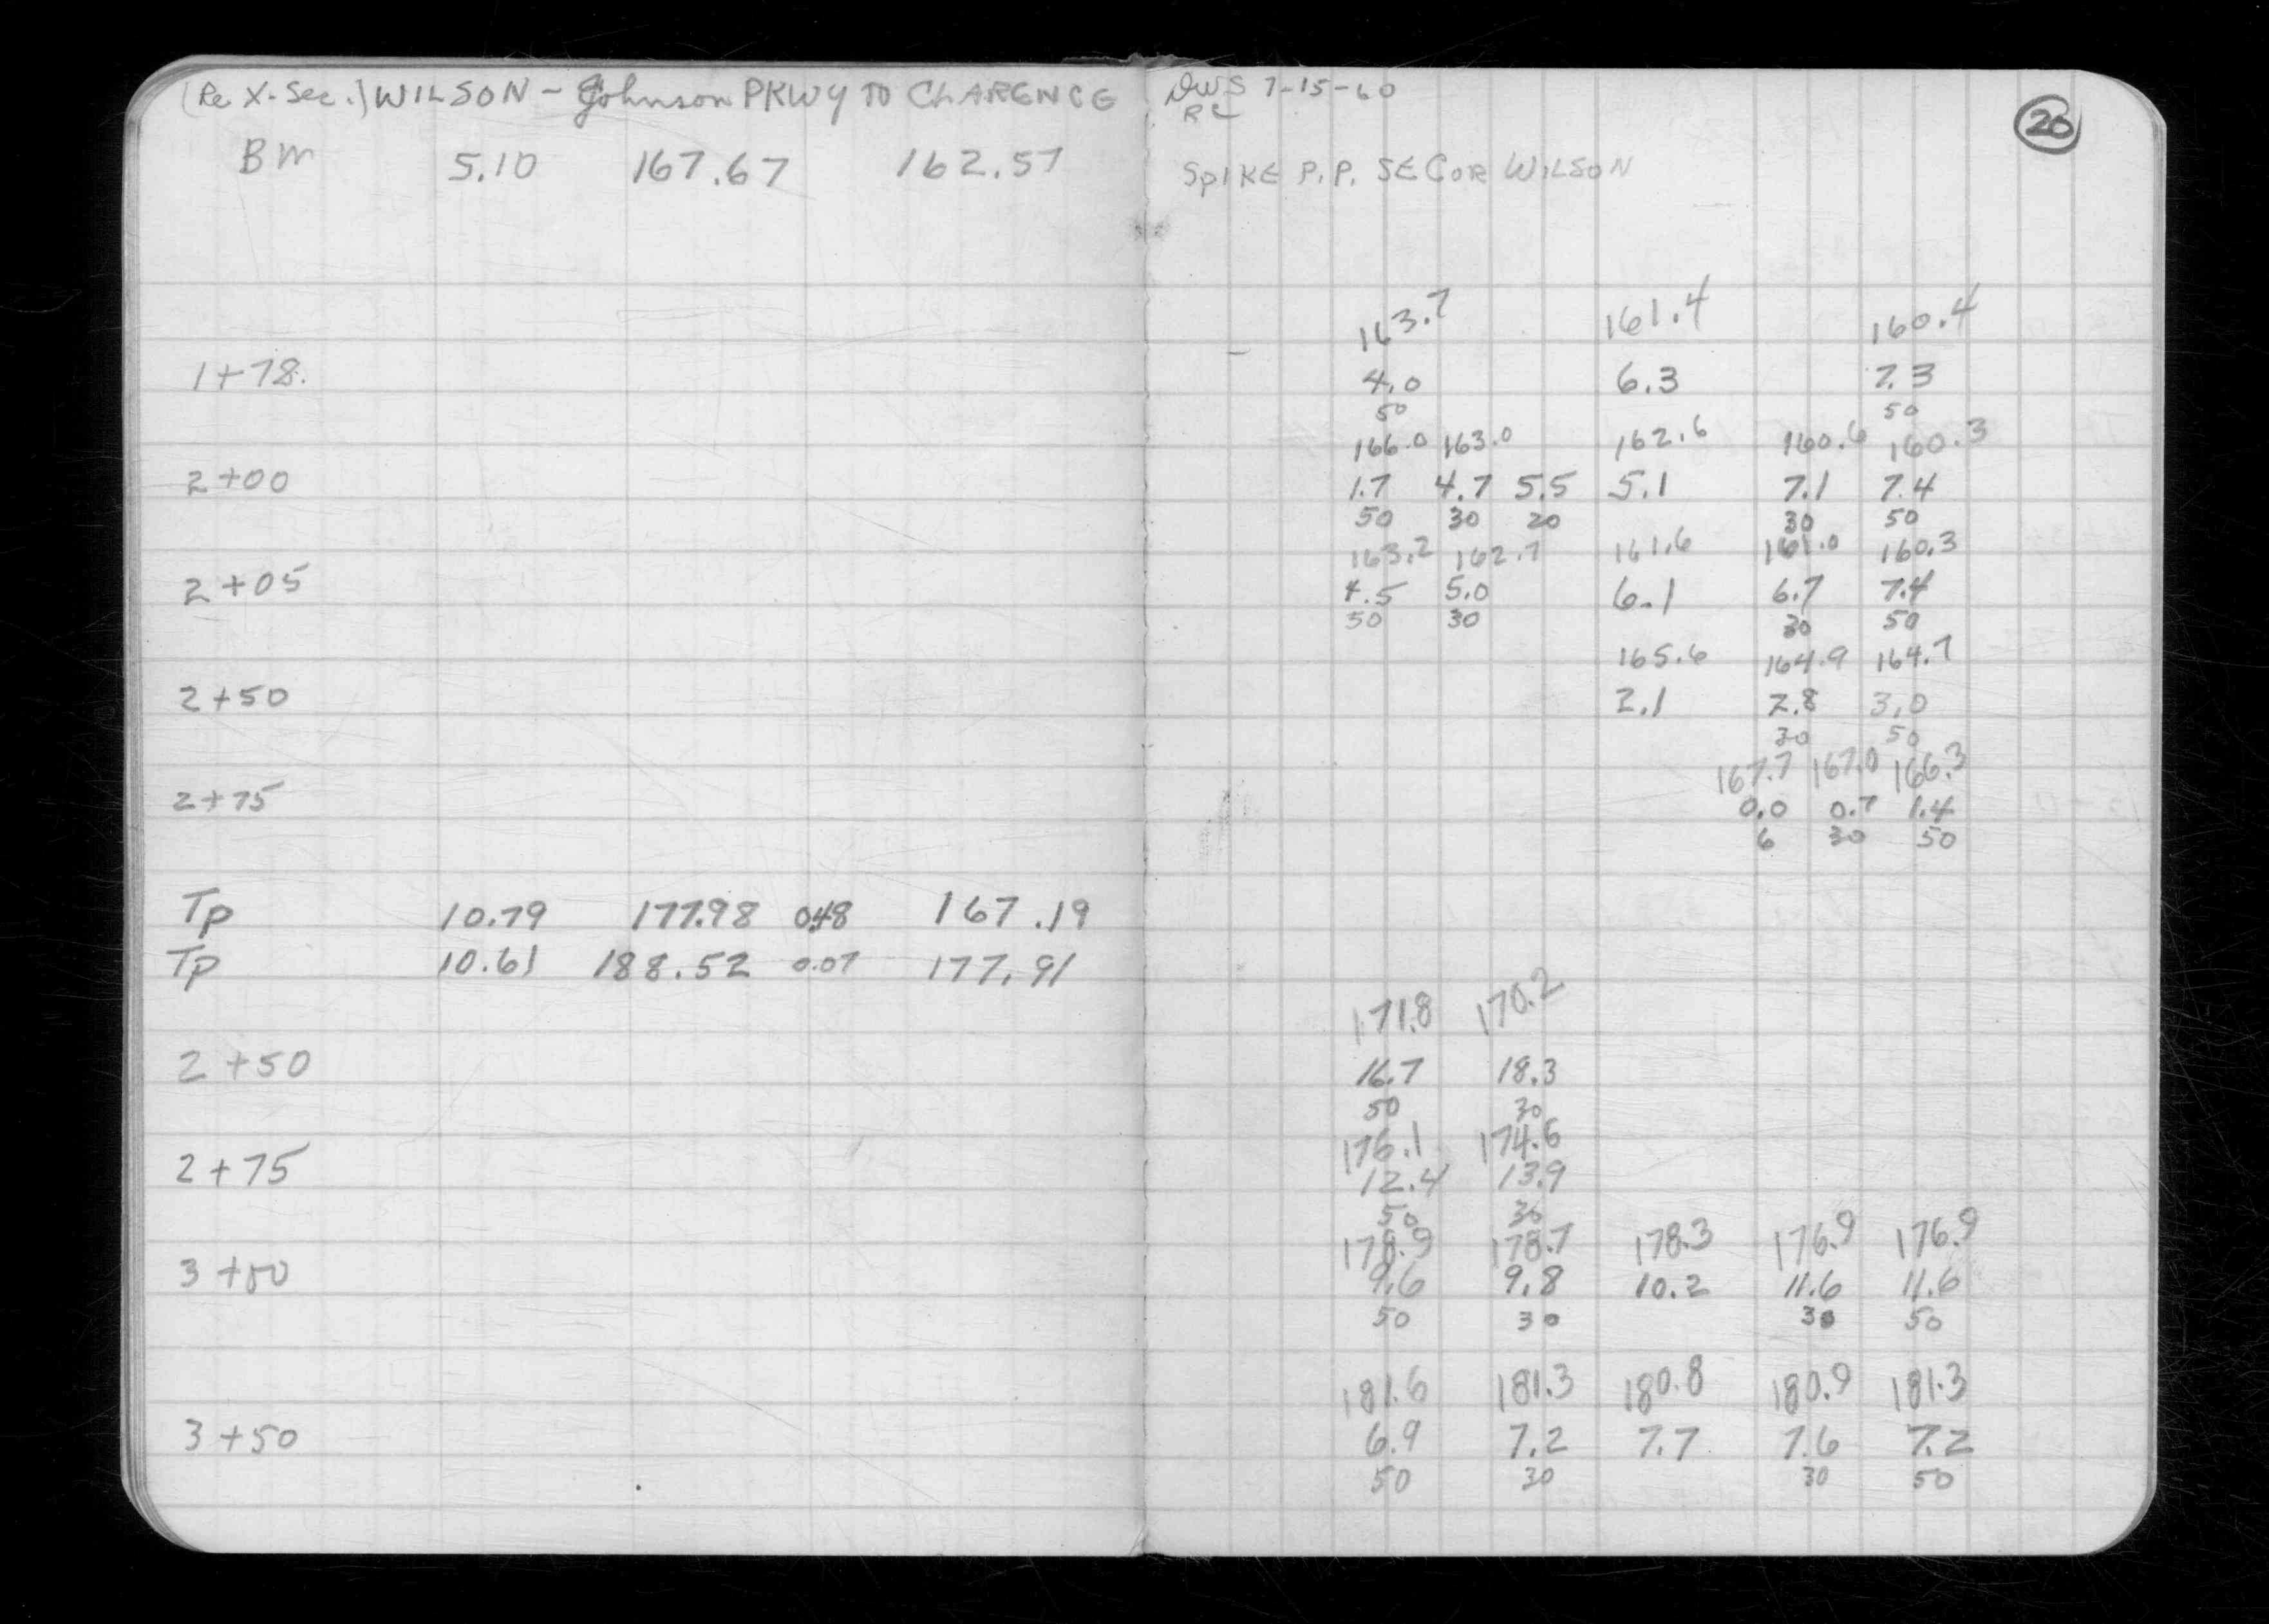 (Re X-Sec.) WILSON - Johnson PKWY TO CLARENCE
BM 5.10 167.67 162.57
1+78.
2+00
2+05
2+50
2+75
Tp 10.79 177.98 0.48 167.19
Tp 10.61 188.52 0.07 177.91
2+50
2+75
3+00
3+50
DWS 7-15-60
RL
20
SPIKE P.P. SE COR WILSON
163.7 161.4 160.4
4.0 6.3 7.3
50 50
166.0 163.0 162.6 160.6 160.3
1.7 4.7 5.5 5.1 7.1 7.4
50 30 20 30 50
163.2 162.7 161.6 161.0 160.3
4.5 5.0 6.1 6.7 7.4
50 30 30 50
165.6 164.9 164.7
2.1 2.8 3.0
30 50
167.7 167.0 166.3
0.0 0.7 1.4
6 30 50
171.8 170.2
16.7 18.3
50 30
176.1 174.6
12.4 13.9
50 30
178.9 178.7 178.3 176.9 176.9
9.6 9.8 10.2 11.6 11.6
50 30 30 50
181.6 181.3 180.8 180.9 181.3
6.9 7.2 7.7 7.6 7.2
50 30 30 50